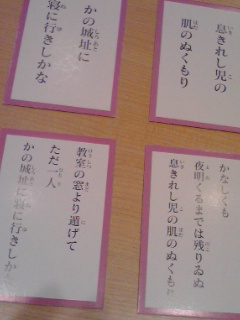 息きれし児の
肌のぬくもり
かの城址に
寝に行きしかな
かなしくも
夜明くるまでは残りゐぬ
息きれし児の肌のぬくもり
教室の窓より遁げて
ただ一人
かの城址に寝に行きしかな